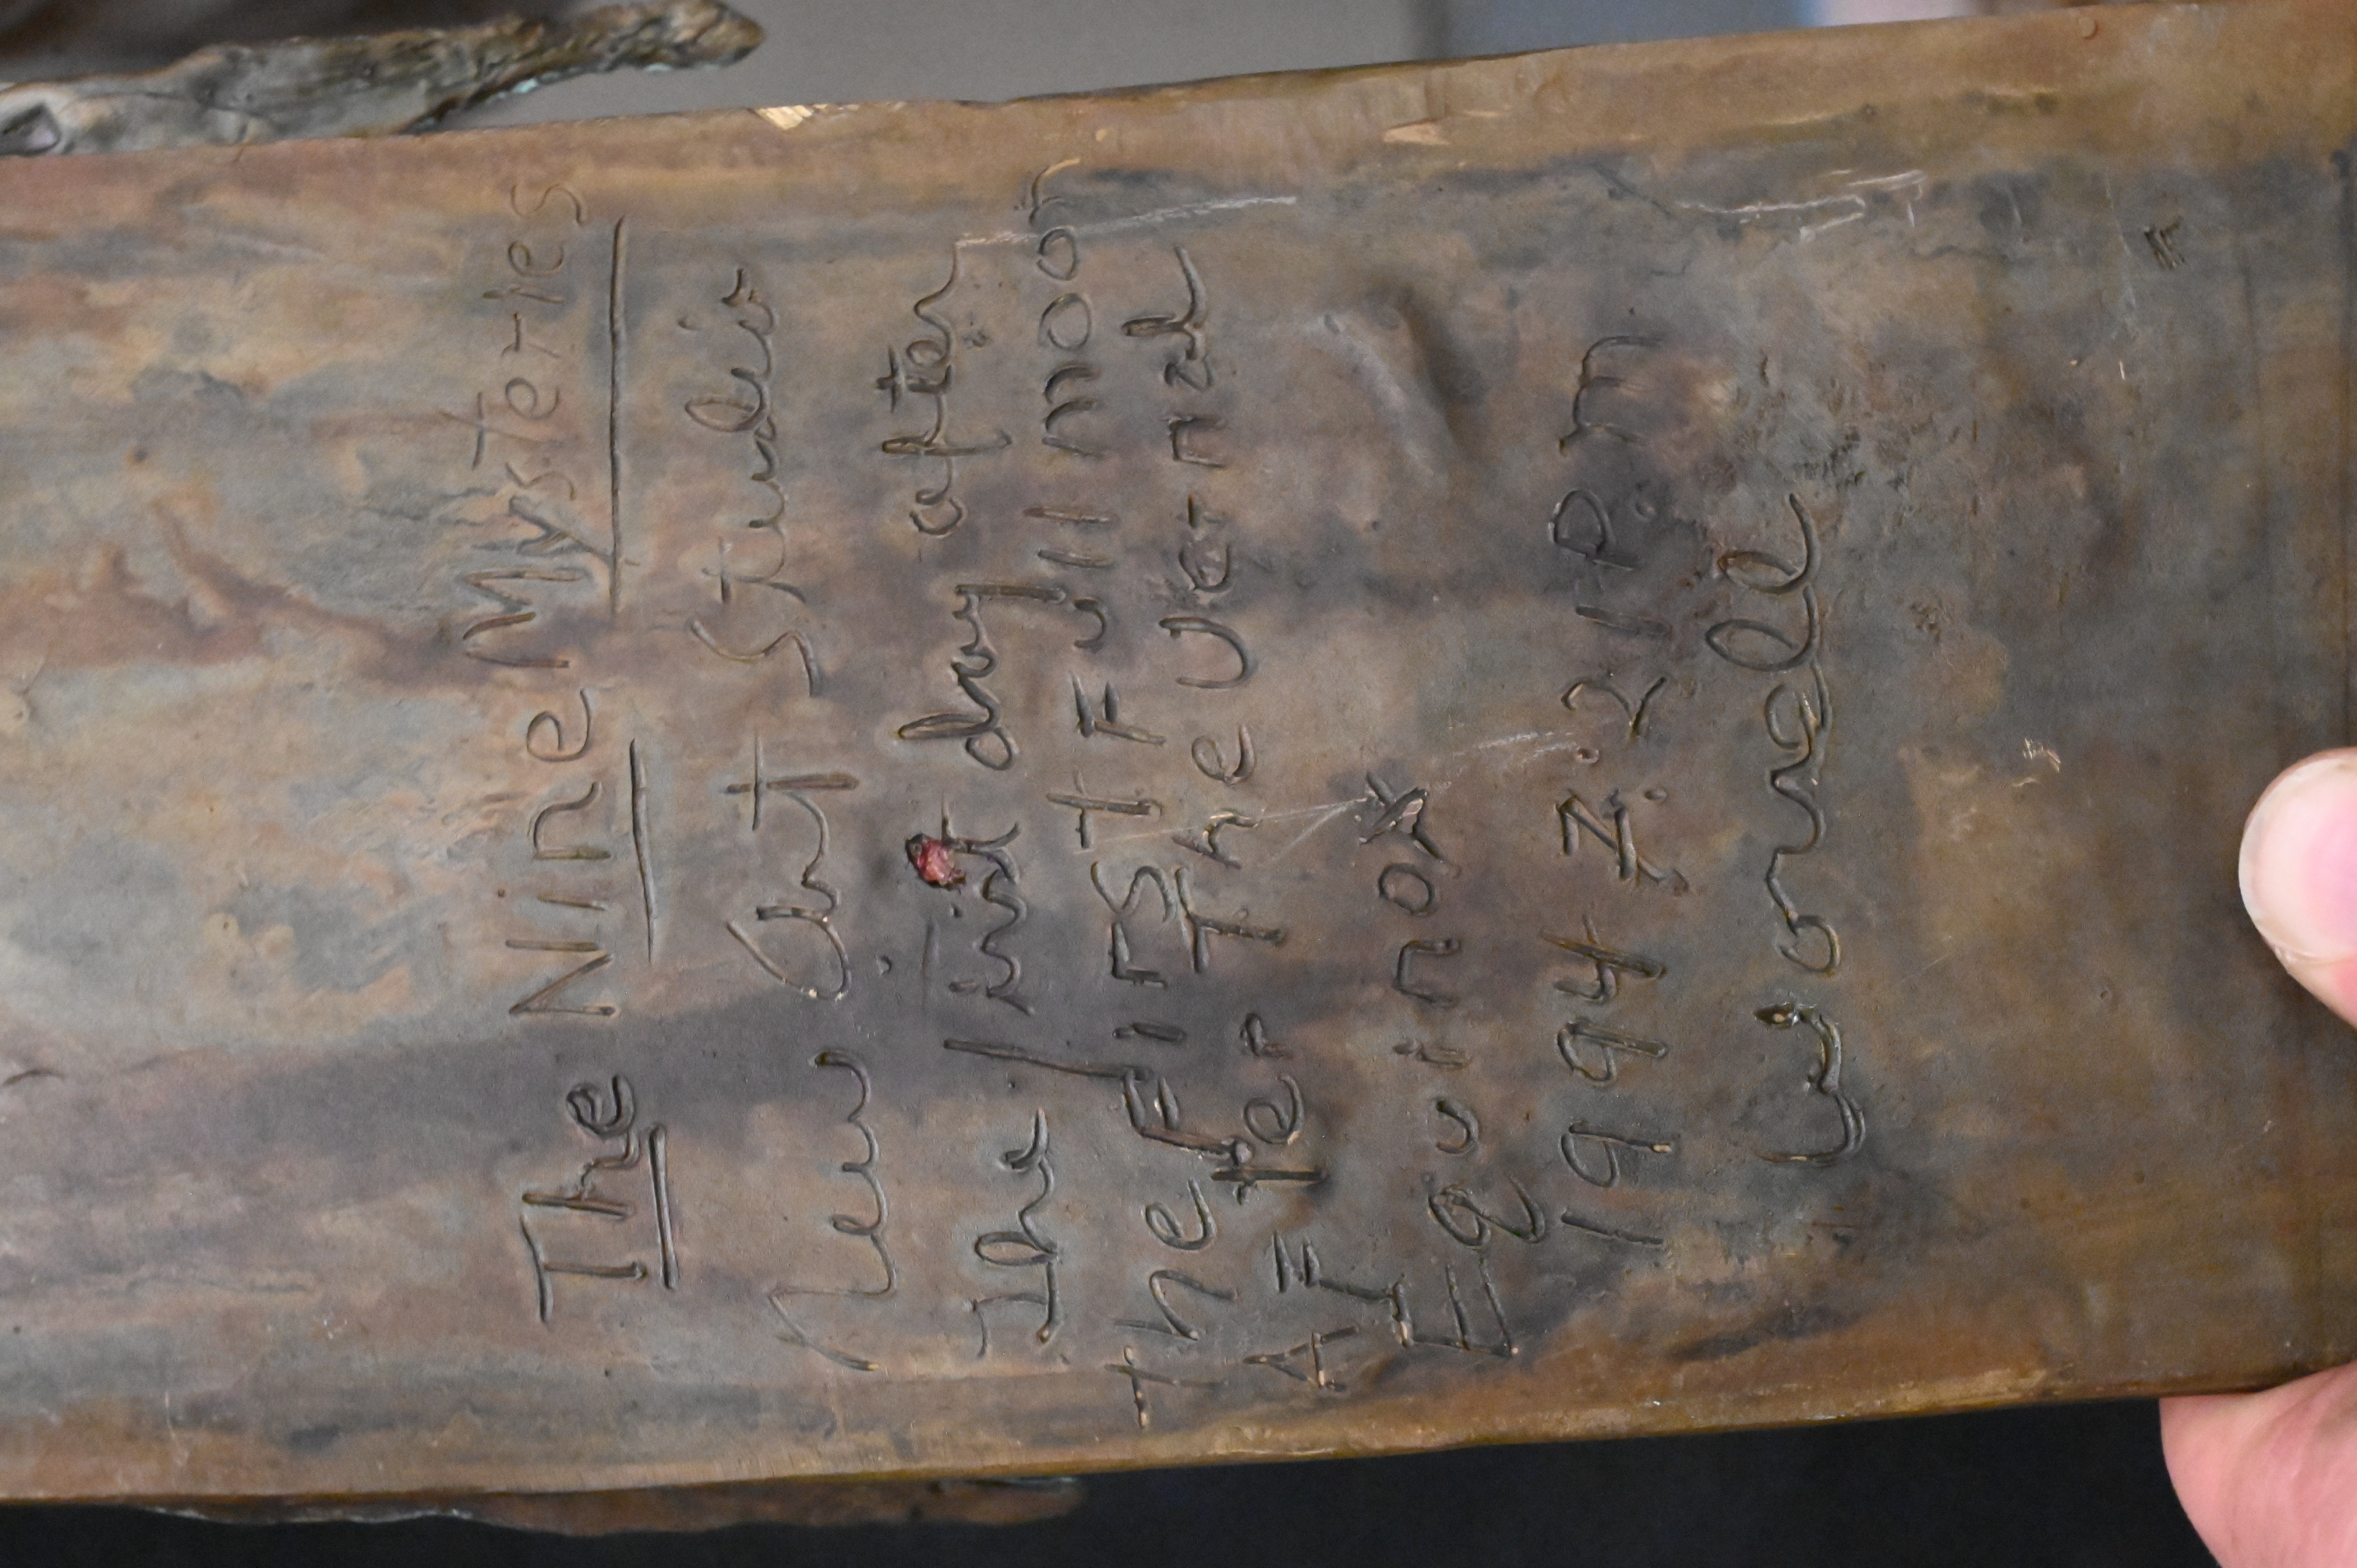 The Nine Mysteries
New Art Studio
The first day after
the First Full moon
After The Vernal
Equinox
1994 7:21 P.m
Worrell